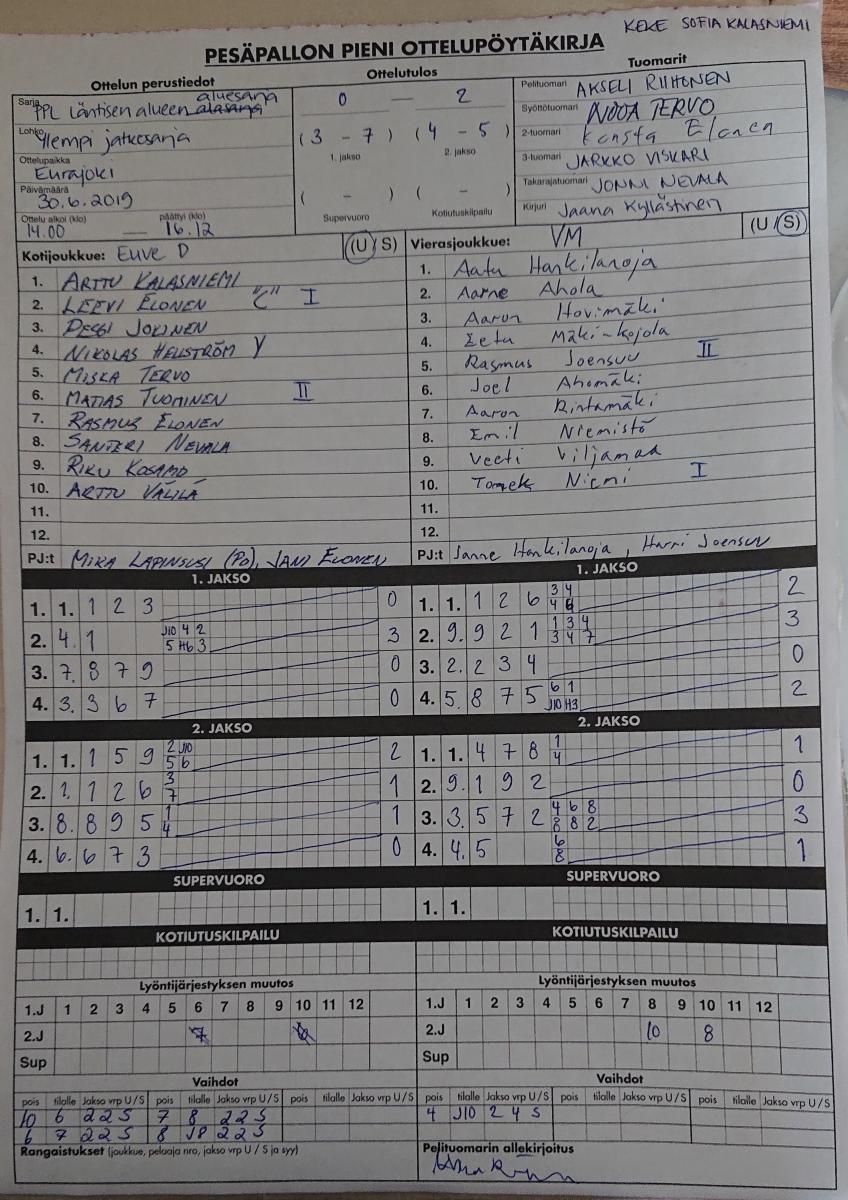 KEKE SOFIA KALASNIEMI
PESÄPALLON PIENI OTTELUPÖYTÄKIRJA
Ottelun perustiedot
Ottelutulos
Tuomarit
Sarja PPL Läntisen alueen aluesarja
Lohko Ylempi jatkosarja
Ottelupaikka Eurajoki
Päivämäärä 30.6.2019
Ottelu alkoi (klo) 14.00 — päättyi (klo) 16.12
0 — 2
(3 - 7) (4 - 5)
1. jakso 2. jakso
( - ) ( - )
Supervuoro Kotiutuskilpailu
Pelituomari AKSELI RIIHONEN
Syöttötuomari NOOA TERVO
2-tuomari Konsta Elonen
3-tuomari JARKKO VISKARI
Takarajatuomari JONNI NEVALA
Kirjuri Jaana Kyllästinen
Kotijoukkue: Euve D (U/S)
1. ARTTU KALASNIEMI
2. LEEVI ELONEN "C" I
3. PESSI JOKINEN
4. NIKOLAS HELLSTRÖM Y
5. MISKA TERVO
6. MATIAS TUOMINEN II
7. RASMUS ELONEN
8. SANTERI NEVALA
9. RIKU KOSAMO
10. ARTTU VÄLILÄ
11.
12.
PJ:t MIKA LAPINSUSI (PO), JANI ELONEN
Vierasjoukkue: VM (U/S)
1. Aatu Hankilanoja
2. Aarne Ahola
3. Aaron Hovimäki
4. Eetu Mäki-Kojola
5. Rasmus Joensuu II
6. Joel Ahomäki
7. Aaron Rintamäki
8. Emil Niemistö
9. Veeti Viljamaa
10. Tomek Niemi I
11.
12.
PJ:t Janne Hankilanoja, Harri Joensuu
1. JAKSO
1. 1. 1 2 3 0
2. 4. 1 J10 4 2 3
5 H6 3
3. 7. 8 7 9 0
4. 3. 3 6 7 0
2. JAKSO
1. 1. 1 5 9 2 J10 2
5 6
2. 1. 1 2 6 3 1
7
3. 8. 8 9 5 1 1
4
4. 6. 6 7 3 0
SUPERVUORO
1. 1.
KOTIUTUSKILPAILU
1. JAKSO
1. 1. 1 2 6 3 4 2
4 6
2. 9. 9 2 1 1 3 4 3
3 4 7
3. 2. 2 3 4 0
4. 5. 8 7 5 6 1 2
J10 H3
2. JAKSO
1. 1. 4 7 8 1 1
4
2. 9. 1 9 2 0
3. 3. 5 7 2 4 6 8 3
8 8 2
4. 4. 5 6 1
8
SUPERVUORO
1. 1.
KOTIUTUSKILPAILU
Lyöntijärjestyksen muutos
1.J 1 2 3 4 5 6 7 8 9 10 11 12
2.J
Sup
Vaihdot
pois tilalle Jakso vrp U/S pois tilalle Jakso vrp U/S pois tilalle Jakso vrp U/S
10 6 2 2 S 7 8 2 2 S
6 7 2 2 S 8 J8 2 2 S
Rangaistukset (joukkue, pelaaja nro, jakso vrp U / S ja syy)
Lyöntijärjestyksen muutos
1.J 1 2 3 4 5 6 7 8 9 10 11 12
2.J 10 8
Sup
Vaihdot
pois tilalle Jakso vrp U/S pois tilalle Jakso vrp U/S pois tilalle Jakso vrp U/S
4 J10 2 4 S
Pelituomarin allekirjoitus